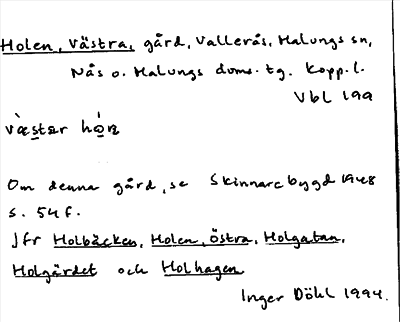 Holen, Västra, gård, Vallerås, Malungs sn,
Nås o. Malungs doms. tg. Kopp. l.
Vbl 199
Om denna gård, se Skinnarebygd 1948
s. 54 f.
Jfr Holbäcken, Holen, Östra, Holgatan,
Holgärdet och Holhagen
Inger Döhl 1994.